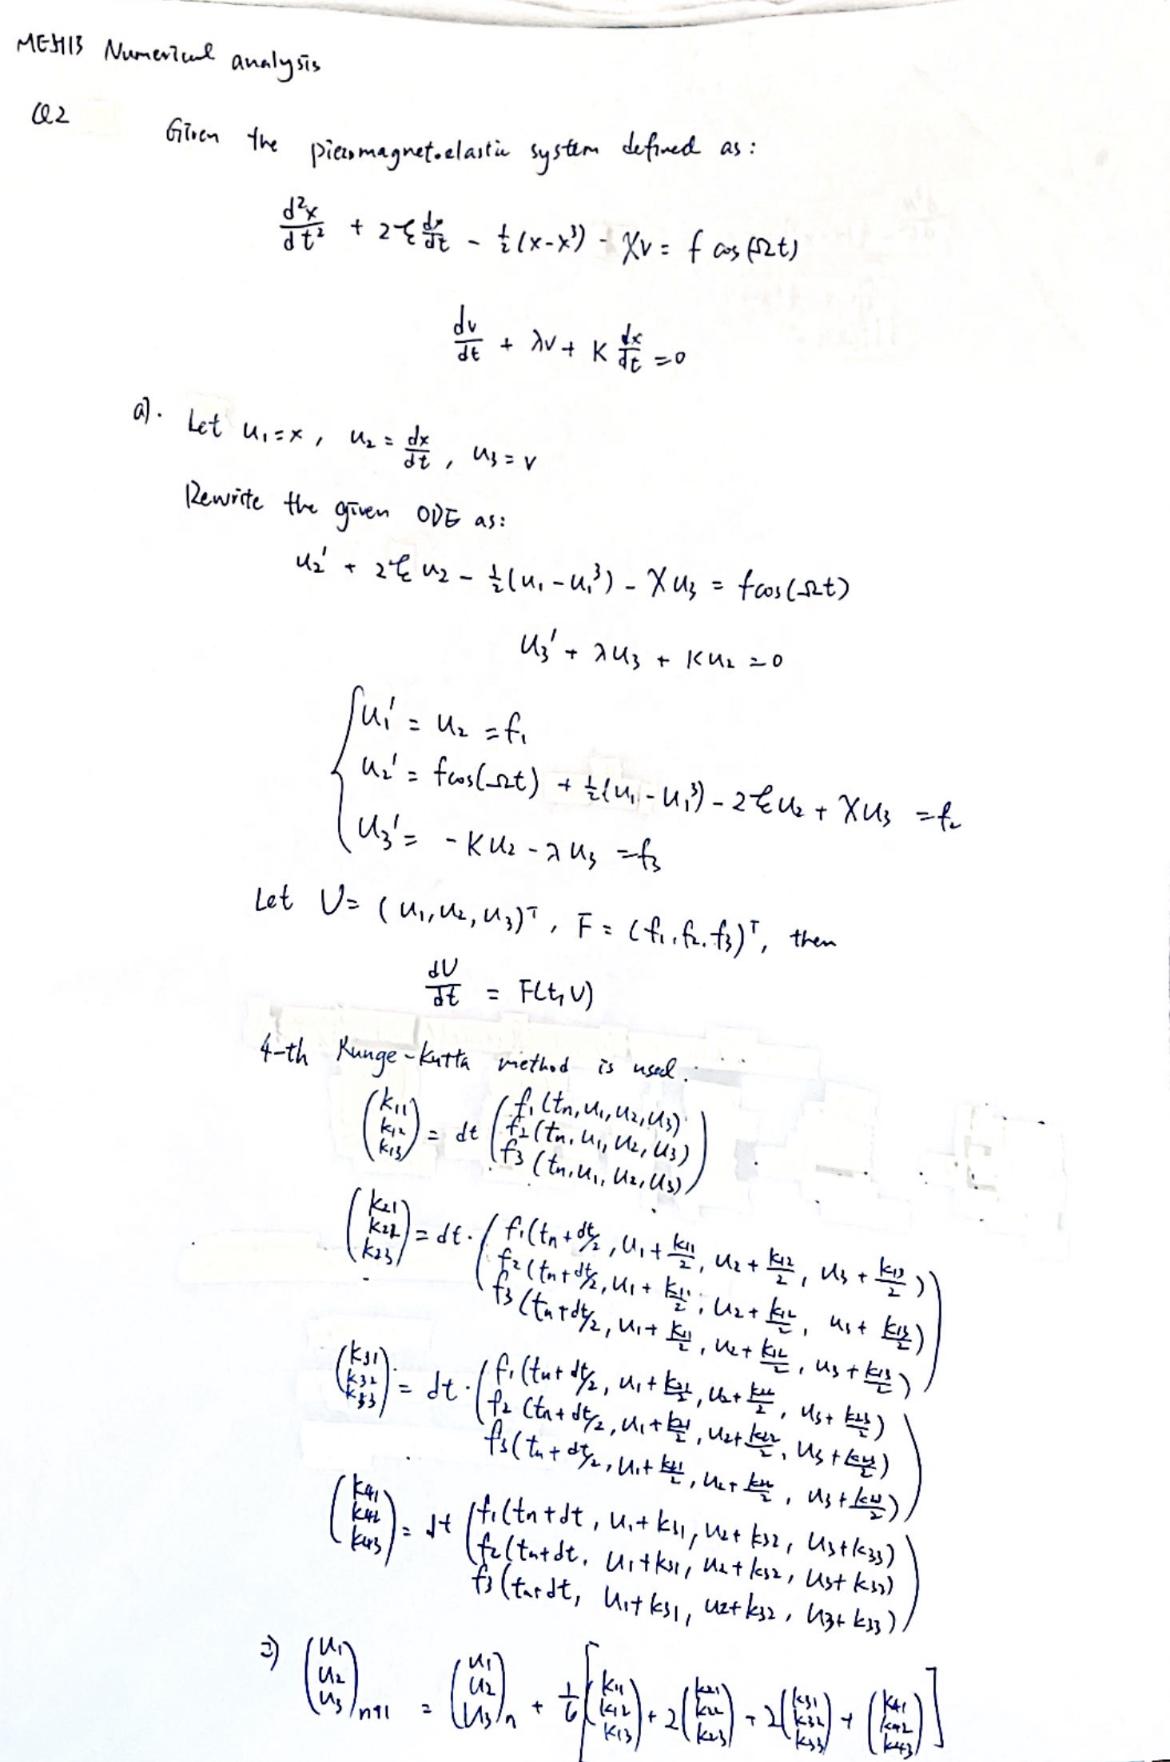 ME5413 Numerical analysis
Q2 Given the piezomagnetoelastic system defined as:
d²x/dt² + 2ξ dx/dt - ½(x-x³) - χv = f cos(Ωt)
dv/dt + λv + K dx/dt = 0
a). Let u₁=x, u₂ = dx/dt, u₃=v
Rewrite the given ODE as:
u₂' + 2ξu₂ - ½(u₁-u₁³) - χu₃ = fcos(Ωt)
u₃' + λu₃ + Ku₂ = 0
u₁' = u₂ = f₁
u₂' = fcos(Ωt) + ½(u₁-u₁³) - 2ξu₂ + χu₃ = f₂
u₃' = -Ku₂ - λu₃ = f₃
Let U= (u₁,u₂,u₃)ᵀ, F = (f₁.f₂.f₃)ᵀ, then
dU/dt = F(t,U)
4-th Runge-kutta method is used:
(k₁₁ k₁₂ k₁₃) = dt (f₁(tn,u₁,u₂,u₃)
f₂(tn,u₁,u₂,u₃)
f₃(tn,u₁,u₂,u₃))
(k₂₁ k₂₂ k₂₃) = dt·(f₁(tn+dt/2, u₁+k₁₁/2, u₂+k₁₂/2, u₃+k₁₃/2)
f₂(tn+dt/2, u₁+k₁₁/2, u₂+k₁₂/2, u₃+k₁₃/2)
f₃(tn+dt/2, u₁+k₁₁/2, u₂+k₁₂/2, u₃+k₁₃/2))
(k₃₁ k₃₂ k₃₃) = dt·(f₁(tn+dt/2, u₁+k₂₁/2, u₂+k₂₂/2, u₃+k₂₃/2)
f₂(tn+dt/2, u₁+k₂₁/2, u₂+k₂₂/2, u₃+k₂₃/2)
f₃(tn+dt/2, u₁+k₂₁/2, u₂+k₂₂/2, u₃+k₂₃/2))
(k₄₁ k₄₂ k₄₃) = dt (f₁(tn+dt, u₁+k₃₁, u₂+k₃₂, u₃+k₃₃)
f₂(tn+dt, u₁+k₃₁, u₂+k₃₂, u₃+k₃₃)
f₃(tn+dt, u₁+k₃₁, u₂+k₃₂, u₃+k₃₃))
⇒ (u₁ u₂ u₃)n+1 = (u₁ u₂ u₃)n + 1/6[(k₁₁ k₁₂ k₁₃) + 2(k₂₁ k₂₂ k₂₃) + 2(k₃₁ k₃₂ k₃₃) + (k₄₁ k₄₂ k₄₃)]